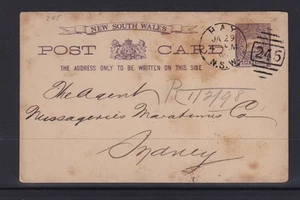 245
NEW SOUTH WALES
POST CARD
THE ADDRESS ONLY TO BE WRITTEN ON THIS SIDE
HAY
JA 29
N.S.W
245
The Agent
R 1/2/98
Messageries Maratimes Co
Sydney